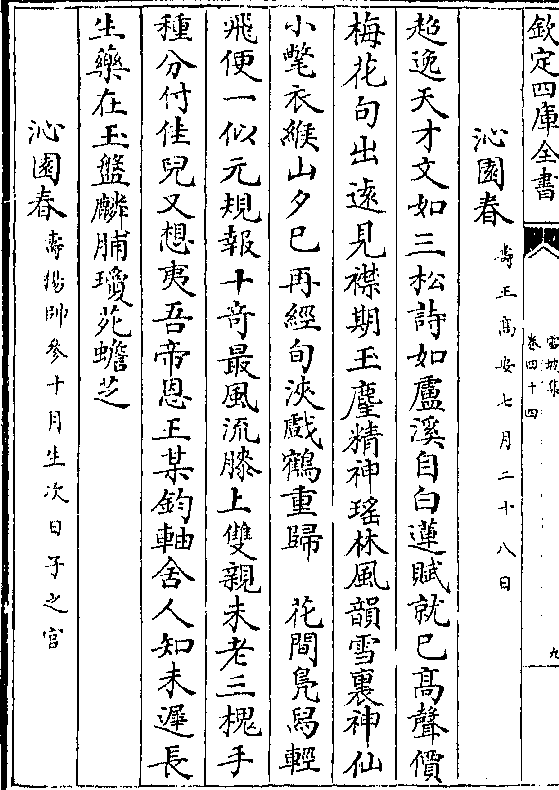 欽定四庫全書
雪坡集
卷四十四
九
沁園春
壽王高安七月二十八日
超逸天才文如三松詩如盧溪自白蓮賦就已高聲價
梅花句出逺見襟期玉麈精神瑶林風韻雪裏神仙
小氅衣緱山夕已再經旬浹戲鶴重歸　花間鳬舄輕
飛便一似元規報十竒最風流膝上雙親未老三槐手
種分付佳兒又想夷吾帝恩王某鈞軸舍人知未遲長
生藥在玉盤麟脯瓊苑蟾芝
沁園春
壽楊帥參十月生次日子之官